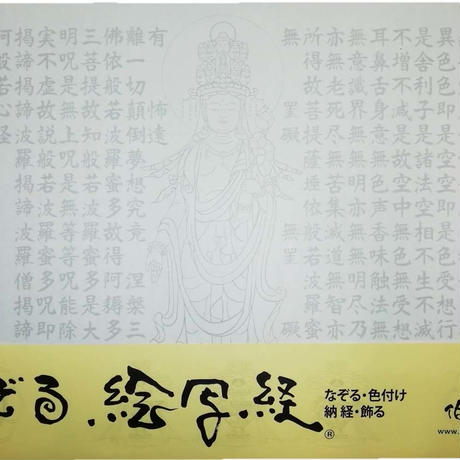 異色色即是空空即是色受想行
是舍利子是諸法空相不生不滅
不增不減是故空中無色無受想
耳鼻舌身意無色声香味触法無
無意識界無無明亦無無明尽乃
亦無老死尽無苦集滅道無智亦
所得故菩提薩埵依般若波羅蜜
無罣礙無罣礙
有怖遠
離一切顛倒夢想究竟涅槃三
佛依般若波羅蜜多故得阿耨多
三菩提故知般若波羅蜜多是大
明呪是無上呪是無等等呪能除
実不虚故説般若波羅蜜多呪即
揭諦揭諦波羅揭諦波羅僧揭諦
般若心経
ぞる、絵写経®
なぞる・色付け
納経・飾る
www.